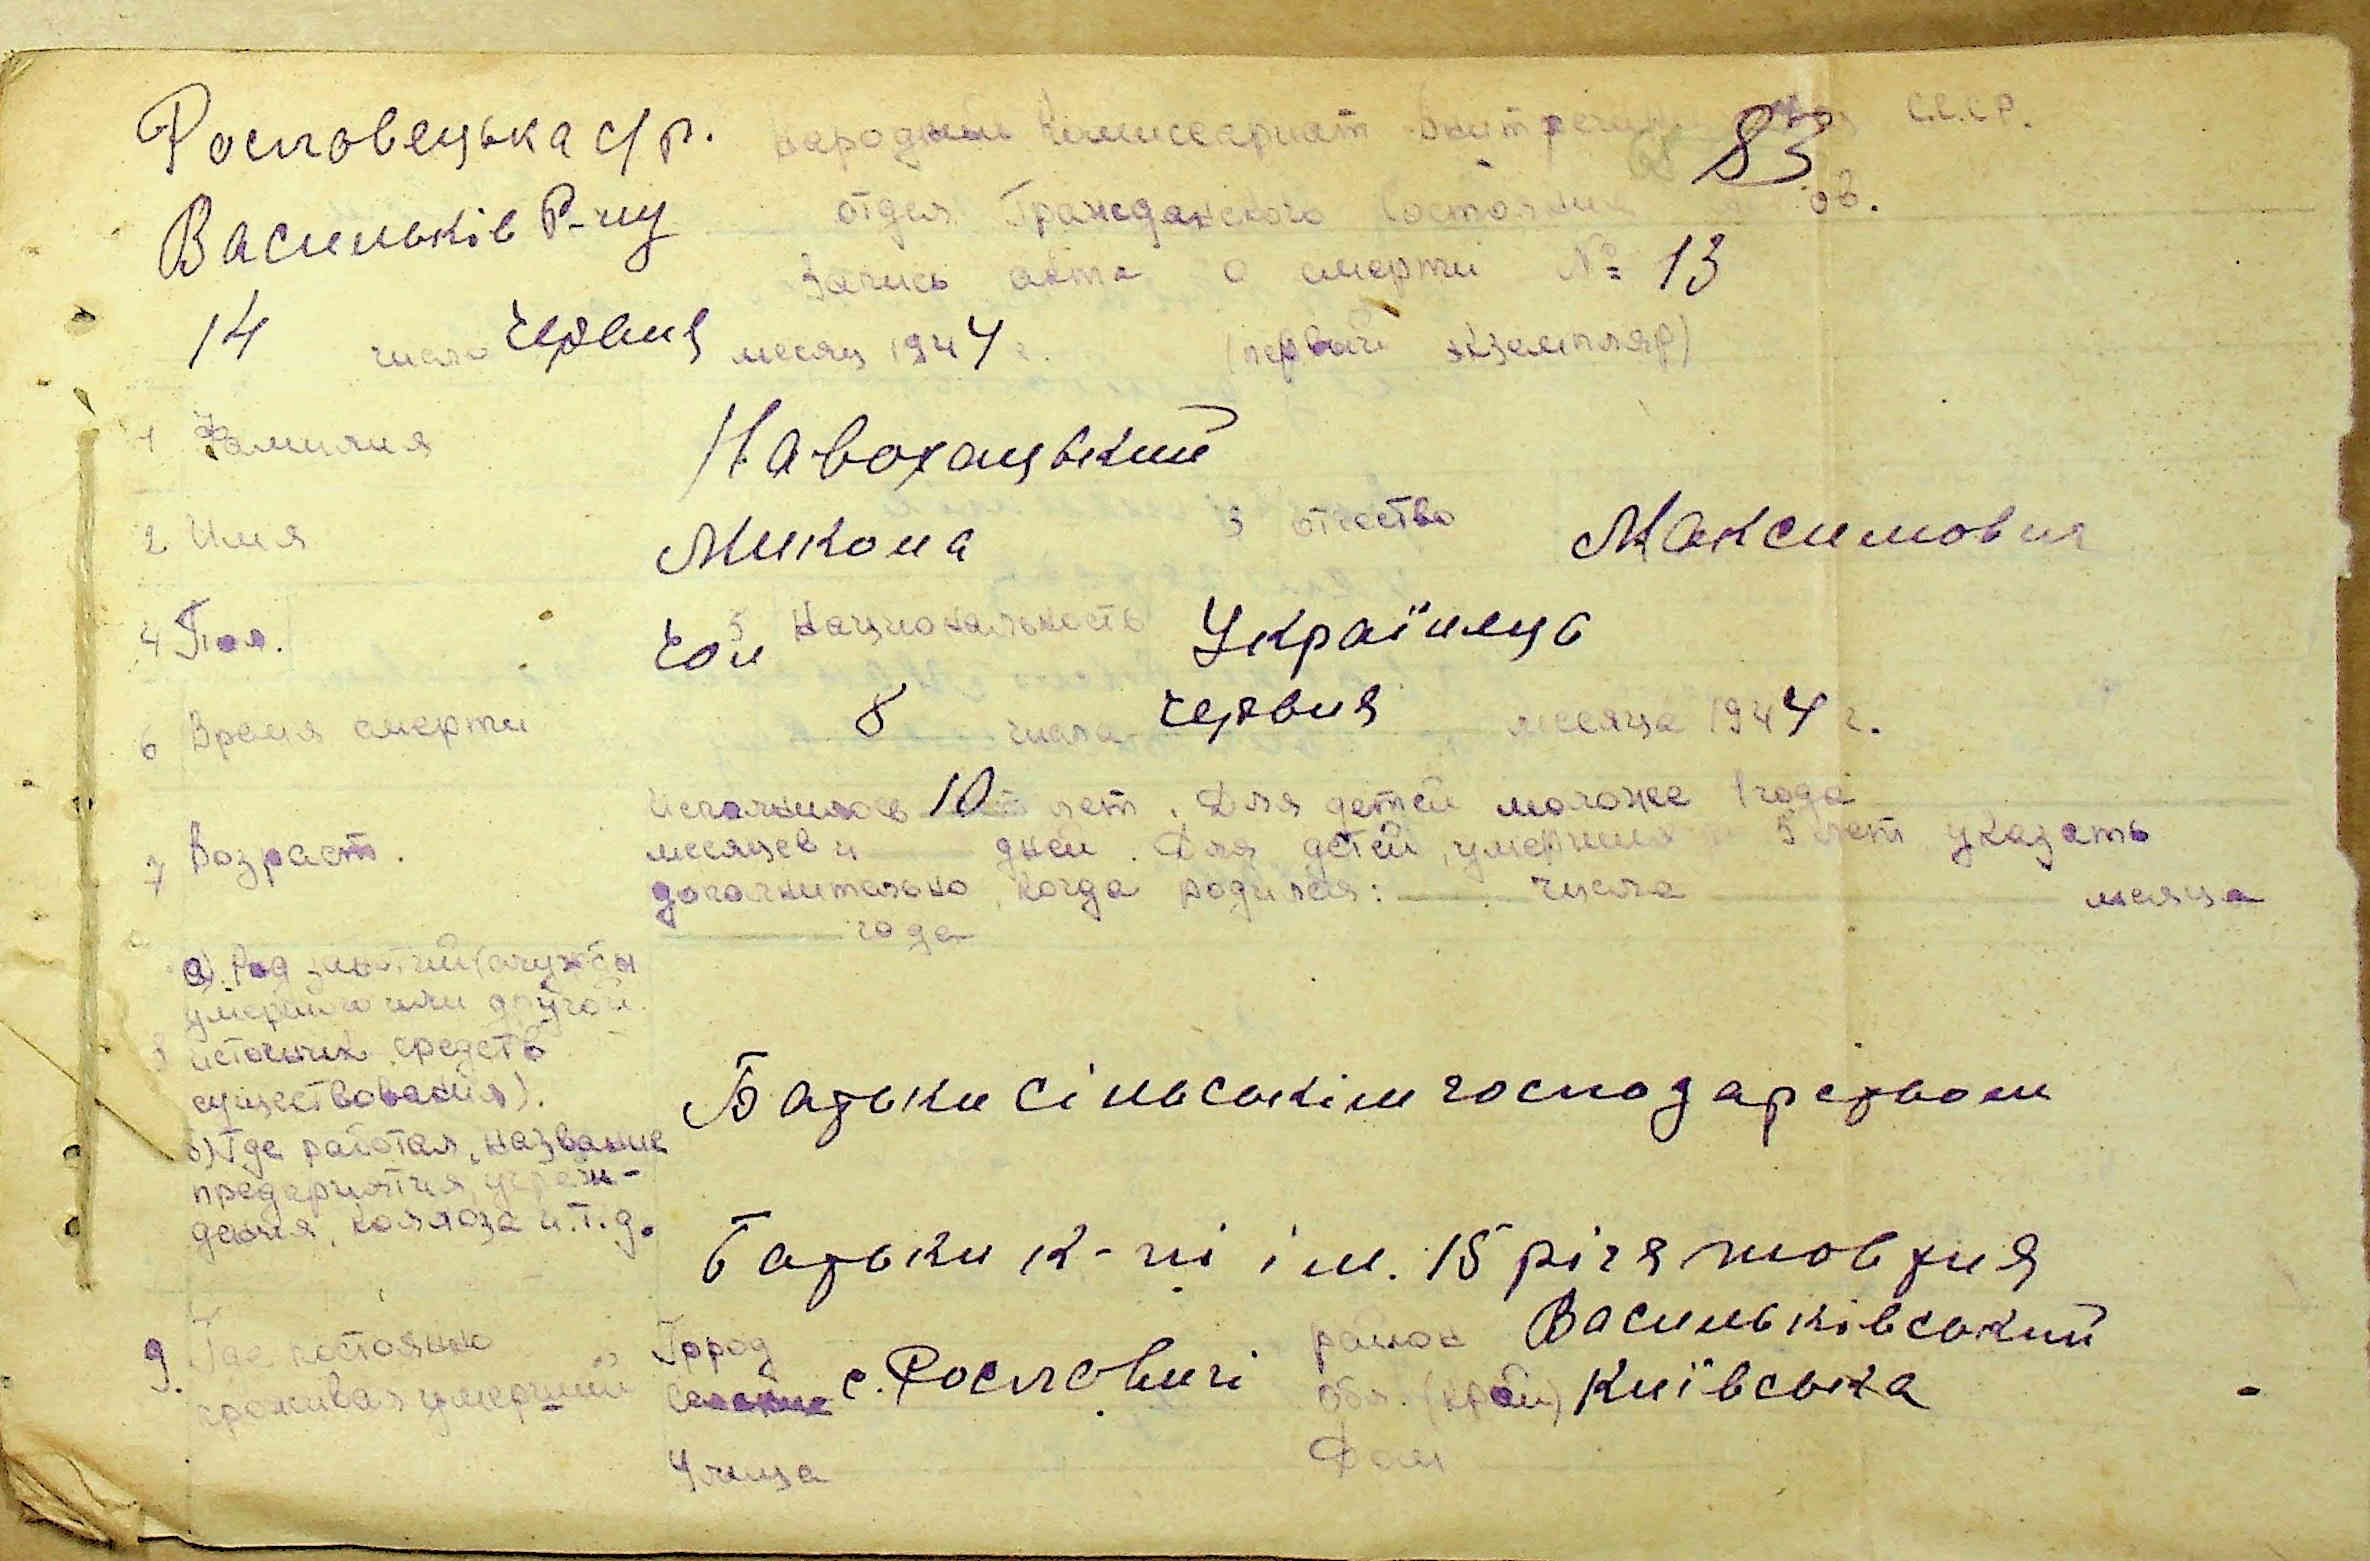 Рославецька с/р.
Народный Комиссариат Внутренних С.С.С.Р.
83
Васильків Р-ну
отдел Гражданского Состояния ов.
Запись акта о смерти № 13
14 число червня месяц 1944 г. (первый экземпляр)
1 Фамилия Навохацький
2 Имя Микола 3 отчество Максимович
4 Пол. Чол 5 Национальность Українець
6 Время смерти 8 числа червня месяца 1944 г.
7 Возраст. Исполнилось 10 лет. Для детей моложе 1 года
месяцев и дней. Для детей, умерших 5 лет указать
дополнительно, когда родился: числа месяца
года
8 а) Род занятий (службы
умершего или другой
источник средств
существования).
Батьки сільськім господарством
б) Где работал, название
предприятия, учреж-
дения, колхоза и.т.д.
Батьки к-пі ім. 15 річя жовтня
9. Где постоянно
проживал умерший
Город район Васильківський
Селение с. Рославичі обл. (край) Київська
Улица Дом